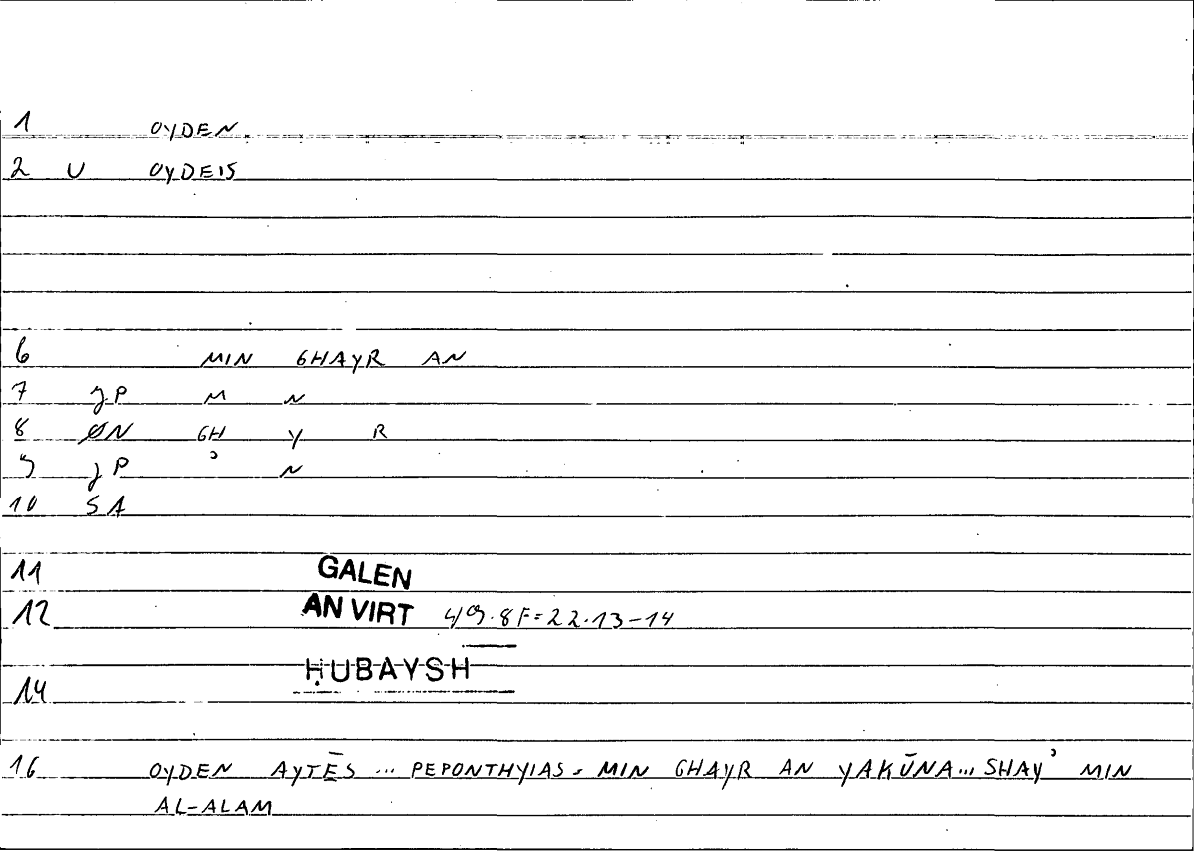 1 OYDEN
2 U OYDEIS
6 MIN GHAYR AN
7 JP M N
8 ØN GH Y R
9 JP ʾ N
10 SA
11 GALEN
12 AN VIRT 49.8F=22.13-14
ḤUBAYSH
14
16 OYDEN AYTĒS ... PEPONTHYIAS = MIN GHAYR AN YAKŪNA ... SHAYʾ MIN
AL-ALAM